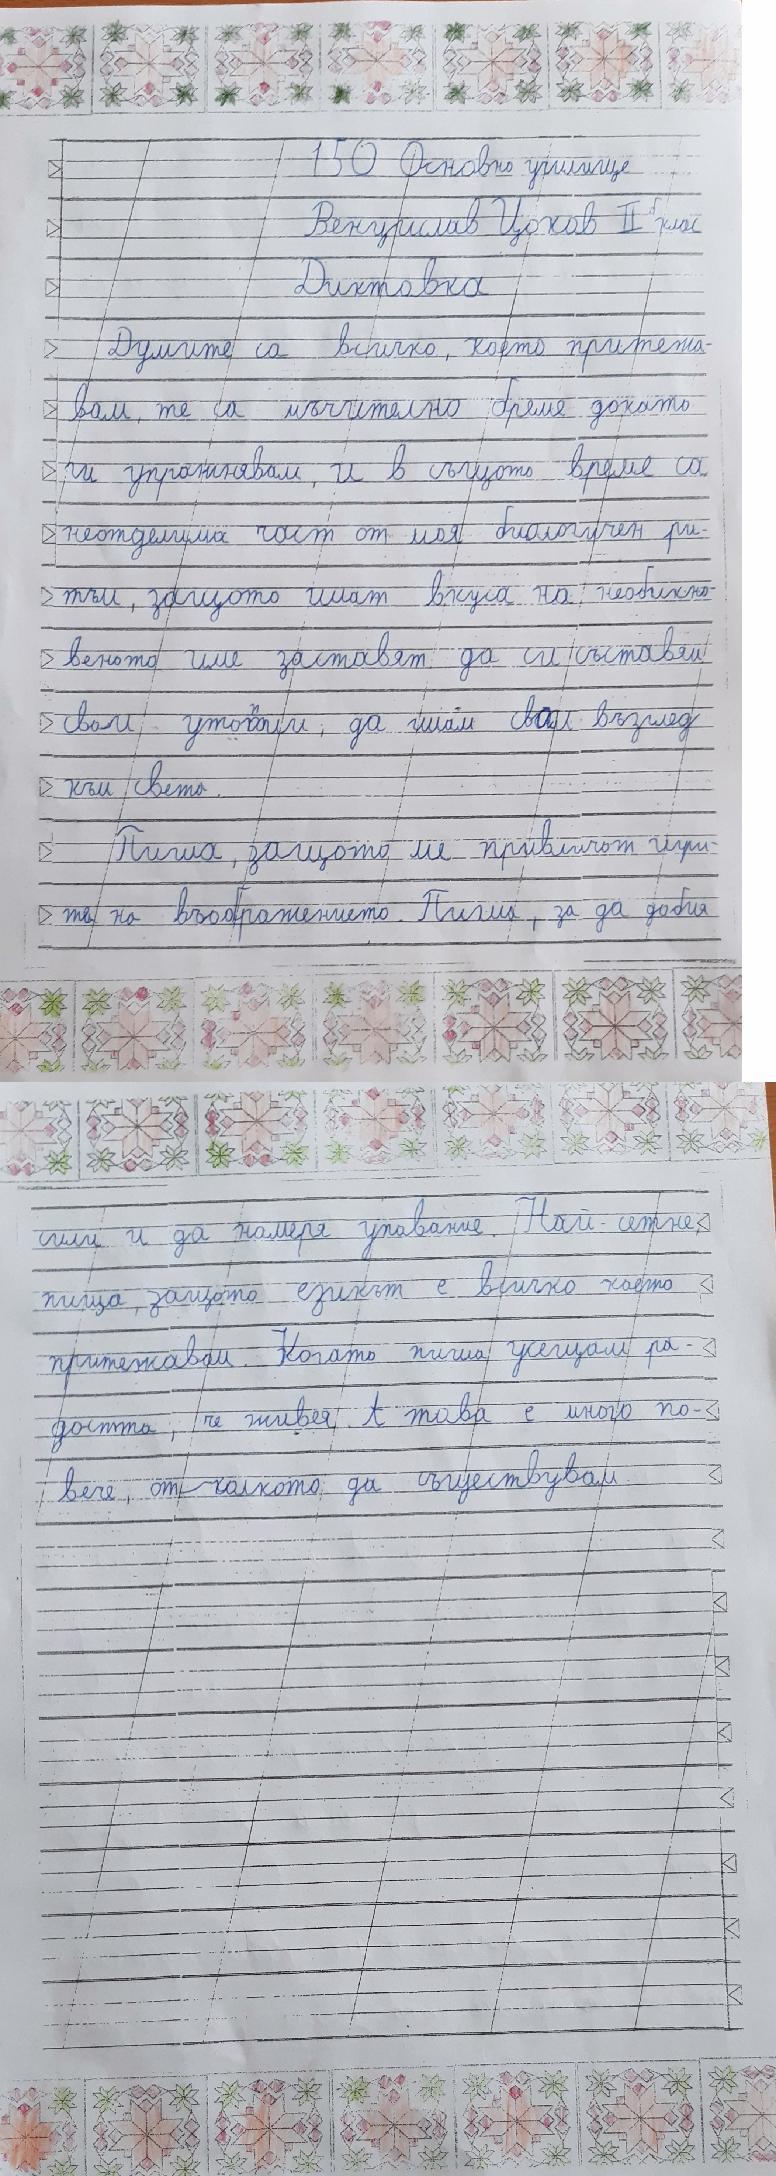 150 Основно училище
Венцислав Цоков II б клас
Диктовка
Думите са всичко, което притежа-
вам, те са мъчително бреме докато
ги упражнявам, и в същото време са
неотделима част от моя биологичен ри-
тъм, защото имат вкуса на необикно-
веното име заставят да си съставям
свои утопии, да имам свои възглед
към света.
Пиша, защото ме привличат игри-
те на въображението. Пиша, за да добия
сили и да намеря упование. Най-сетне,
пиша, защото езикът е всичко което
притежавам. Когато пиша усещам ра-
достта, че живея. А това е много по-
вече, от колкото да съществувам.